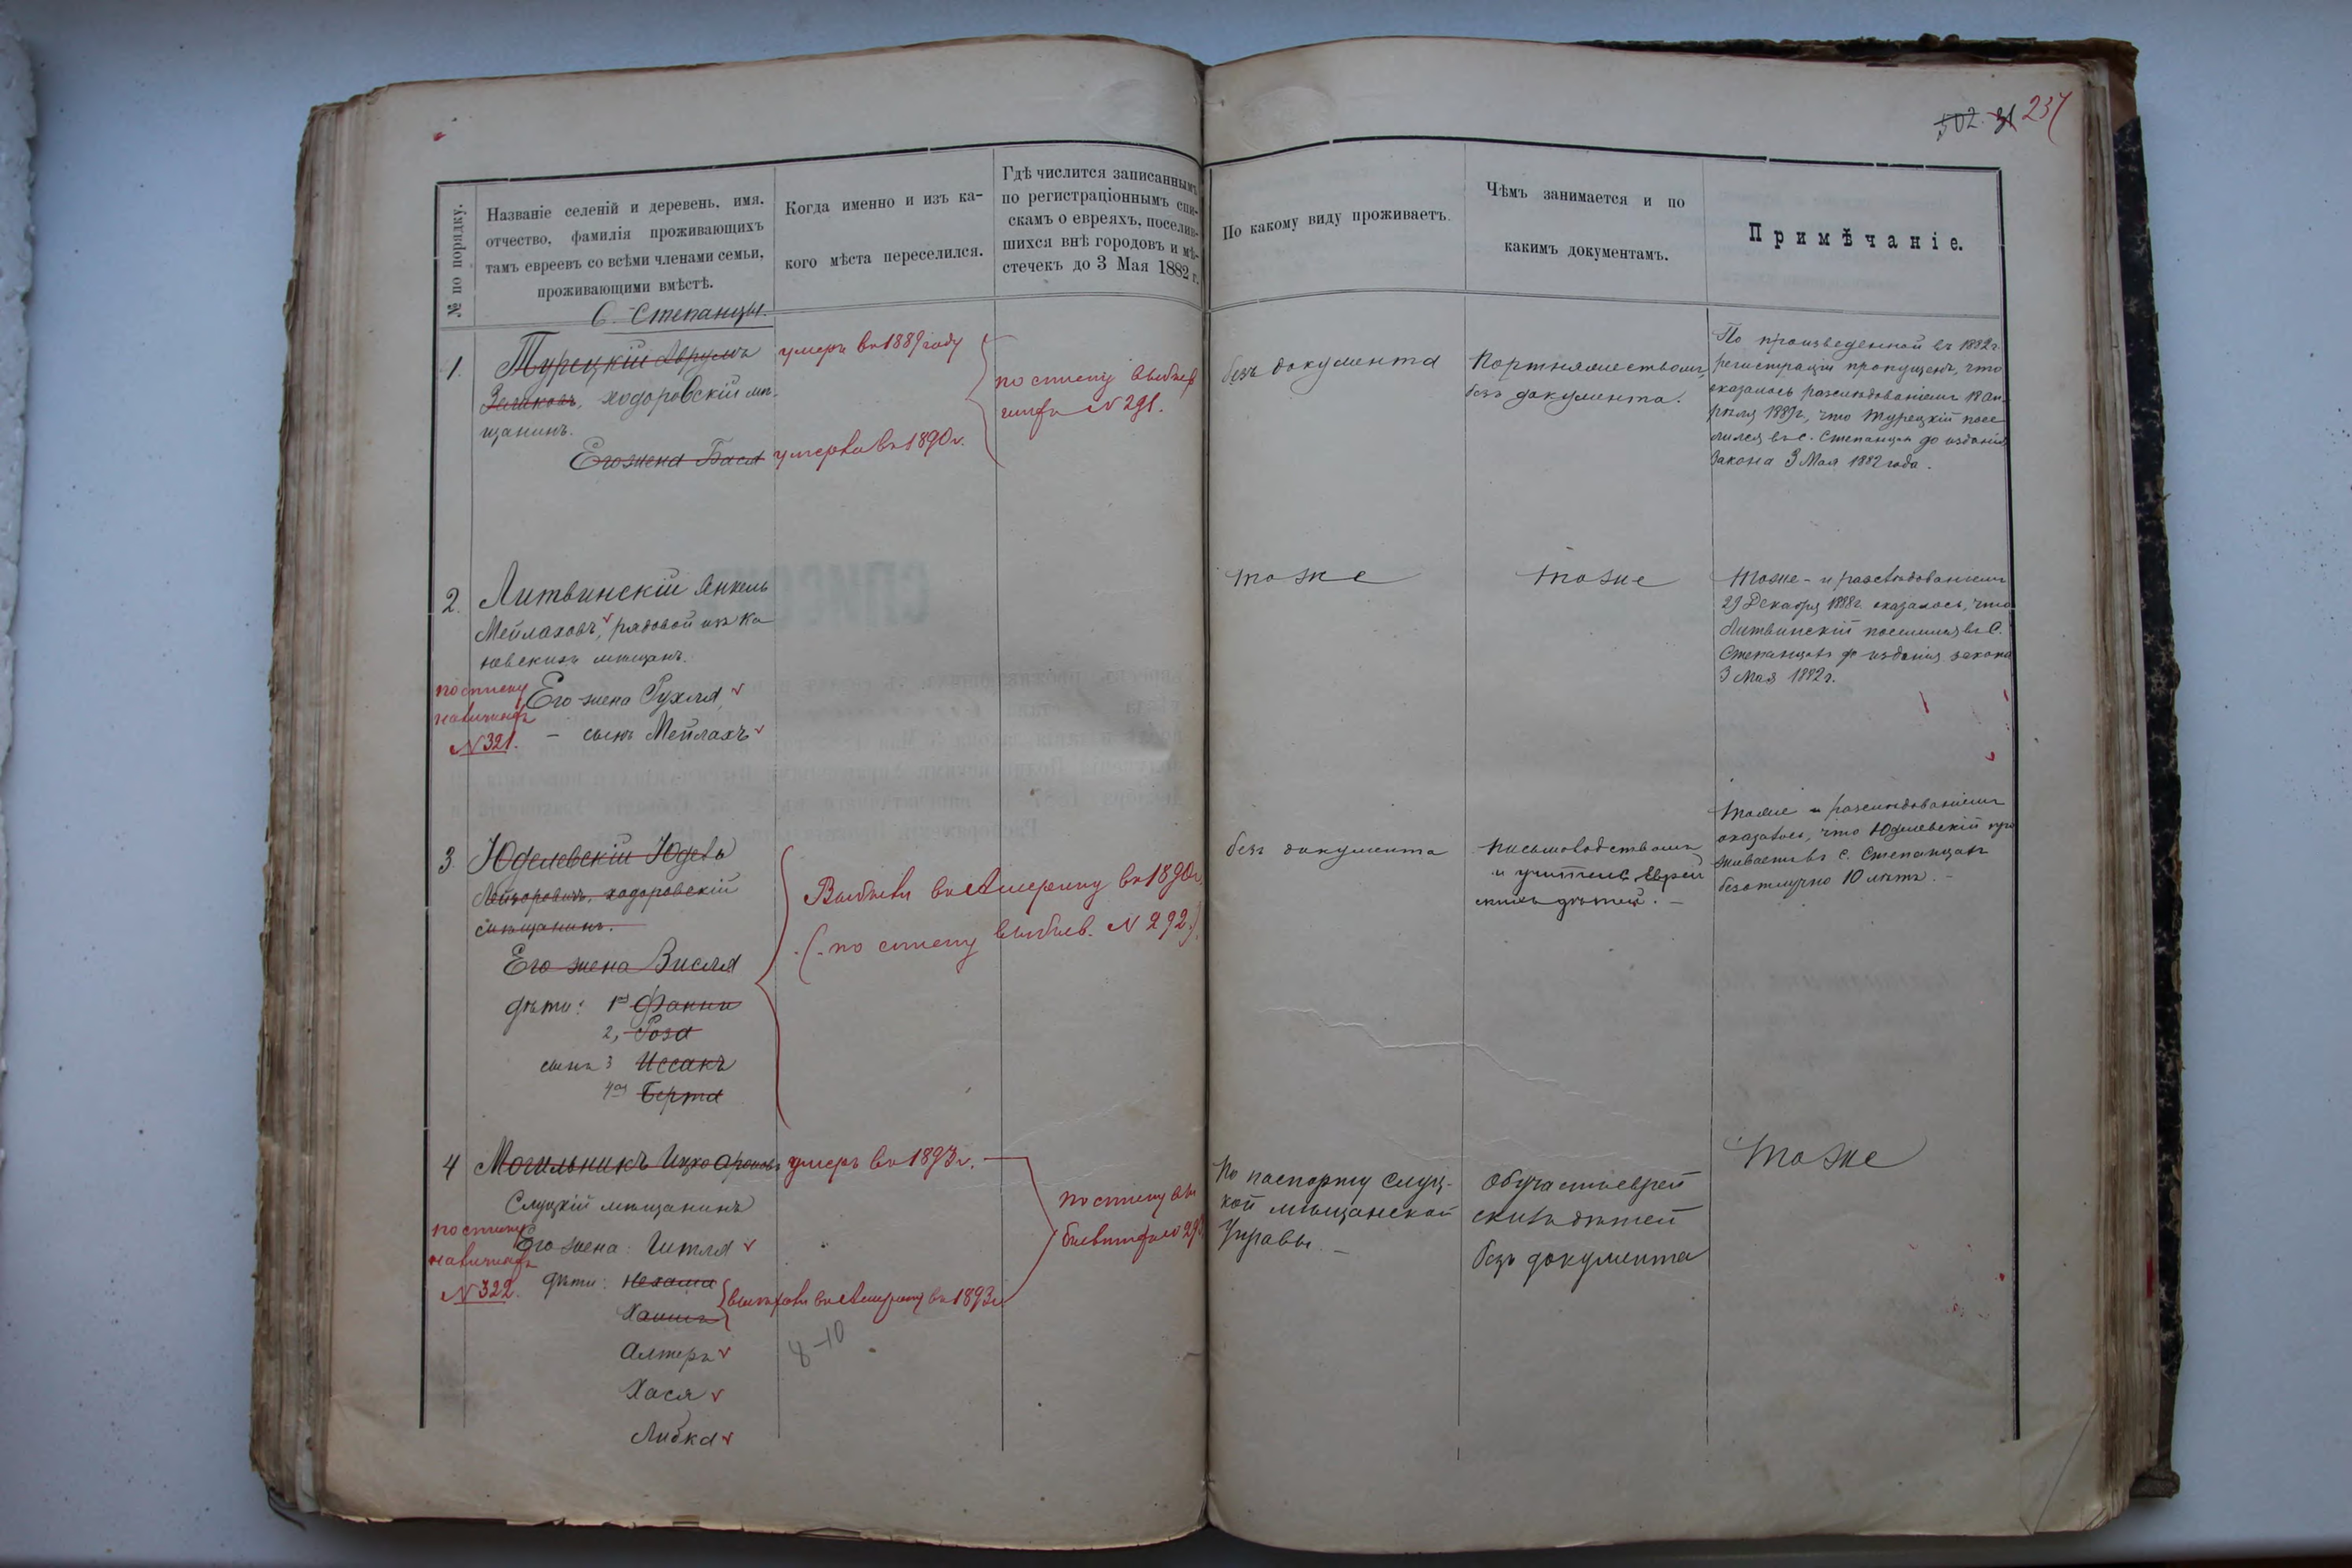 502. 31 237
№ по порядку.
Названіе селеній и деревень, имя.
отчество, фамилія проживающихъ
тамъ евреевъ со всѣми членами семьи,
проживающими вмѣстѣ.
Когда именно и изъ ка-
кого мѣста переселился.
Гдѣ числится записаннымъ
по регистраціоннымъ спи-
скамъ о евреяхъ, поселив-
шихся внѣ городовъ и мѣ-
стечекъ до 3 Мая 1882 г.
По какому виду проживаетъ.
Чѣмъ занимается и по
какимъ документамъ.
Примѣчаніе.
С. Степанцы.
1.
Турецкій Аврумъ
ходоровскій мѣ-
щанинъ.
Его жена Бася
умеръ въ 1889 году
умерла въ 1890 г.
по списку выбыв
шихъ № 291.
безъ документа
Портняжествомъ,
безъ документа.
По произведенной въ 1882 г.
регистраціи пропущенъ, что
оказалось разслѣдованіемъ 18 Ап-
рѣля 1889 г., что Турецкій посе
лился въ с. Степанцахъ до изданія
Закона 3 Мая 1882 года.
2.
Литвинскій Янкель
Мейлаховъ, рядовой изъ Ка
невскихъ мѣщанъ.
Его жена Рухля
– сынъ Мейлахъ
по списку
наличныхъ
№ 321.
тоже
тоже
Тоже – и разслѣдованіемъ
29 Декабря 1888 г. оказалось, что
Литвинскій поселился въ С.
Степанцахъ до изданія закона
3 Мая 1882 г.
3
Юделевскій Юдель
Лейзоровичъ, ходоровскій
мѣщанинъ.
Его жена Висля
дѣти: 1ая Фанни
2, Роза
сынъ 3 Иссакъ
4ая Берта
Выбыли въ Америку въ 1890 г.
(по списку выбыв. № 292.)
безъ документа
Письмоводствомъ
и учитель Еврей
скихъ дѣтей. –
Тоже и разслѣдованіемъ
оказалось, что Юделевскій про
живаетъ въ с. Степанцахъ
безотлучно 10 лѣтъ. –
4
Могильникъ Ицко Ароновъ
Слуцкій мѣщанинъ
Его жена: Гитля
дѣти: Нехама
Хаимъ
Алтеръ
Хася
Либка
по списку
наличныхъ
№ 322.
умеръ въ 1893 г.
выѣхали въ Америку въ 1893 г.
8–10
по списку вы
бывшихъ № 293
По паспорту Слуц-
кой мѣщанской
Управы. –
Обучаетъ еврей
скихъ дѣтей
безъ документа
Тоже